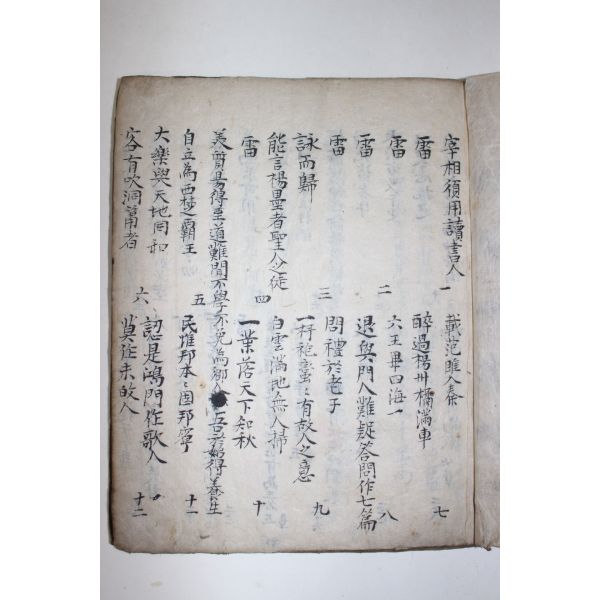 宰相須用讀書人 一 載范睢入秦 七
雷 醉過楊州橘滿車
雷 二 六王畢四海一 八
雷 退與門人難疑答問作七篇
雷 三 問禮於老子 九
詠而歸 一綈袍戀〻有故人之意
能言楊墨者聖人之徒 白雲滿地無人掃
雷 四 一葉落天下知秋 十
美質易得至道難聞不學不免為鄉人 吾 得養生
自立為西楚霸王 五 民惟邦本〻固邦寧 十一
大樂與天地同和 認是鴻門作歌人
客有吹洞簫者 六 莫 未 人 十二